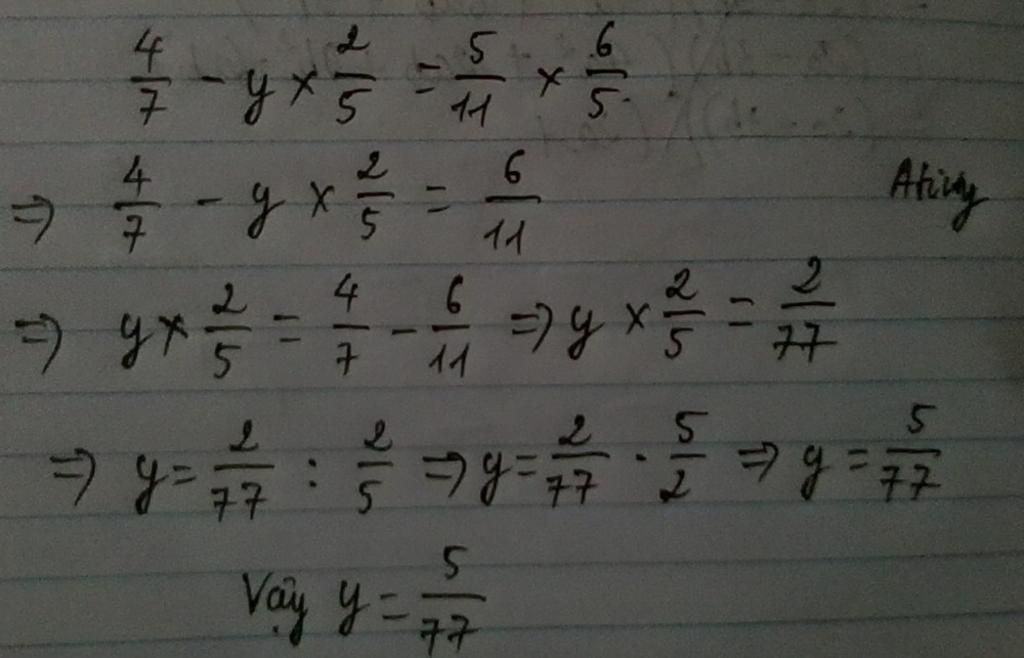 4/7 - y × 2/5 = 5/11 × 6/5.
⇒ 4/7 - y × 2/5 = 6/11
⇒ y × 2/5 = 4/7 - 6/11 ⇒ y × 2/5 = 2/77
⇒ y = 2/77 : 2/5 ⇒ y = 2/77 · 5/2 ⇒ y = 5/77
Vậy y = 5/77